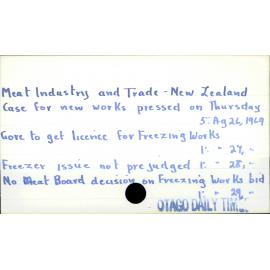 Meat Industry and Trade - New Zealand
Case for new works pressed on Thursday
5: Ag 26, 1969
Gore to get licence for Freezing Works
1: " 27, "
Freezer issue not prejudged 1: " 28, "
No Meat Board decision on Freezing Works bid
1: " 29, "
OTAGO DAILY TIMES